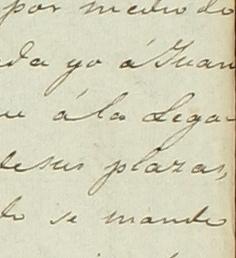 por medio de
da yo á Juan
á la Lega-
de sus plazas,
se mande